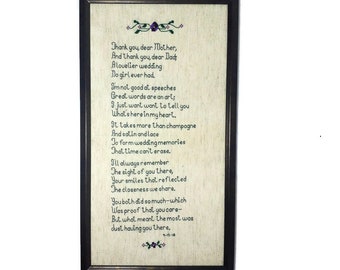 Thank you, dear Mother,
And thank you, dear Dad;
A lovelier wedding
No girl ever had.
I'm not good at speeches
Great words are an art;
I just want want to tell you
What's here in my heart.
It takes more than champagne
And satin and lace
To form wedding memories
That time can't erase.
I'll always remember
The sight of you there,
Your smiles that reflected
The closeness we share.
You both did so much—which
Was proof that you care—
But what meant the most was
Just having you there.